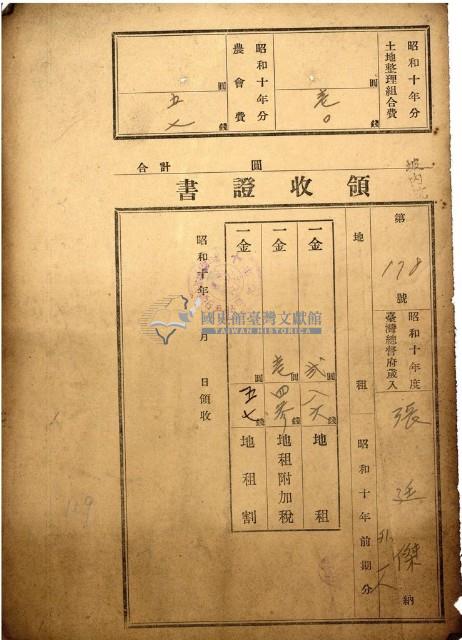 昭和十年分
土地整理組合費
圓
壱
〇
錢
昭和十年分
農會費
圓
五
七
錢
合計
圓
領收證書
坡內
第
178
號
昭和十年度
臺灣總督府歲入
張
傑
外一人
納
地租
昭和十年前期分
一金
圓
弐
八
六
錢
地租
一金
圓
壱
四
參
錢
地租附加稅
一金
圓
五
七
錢
地租割
昭和十年
月
日領收
國史館臺灣文獻館
TAIWAN HISTORICA
129